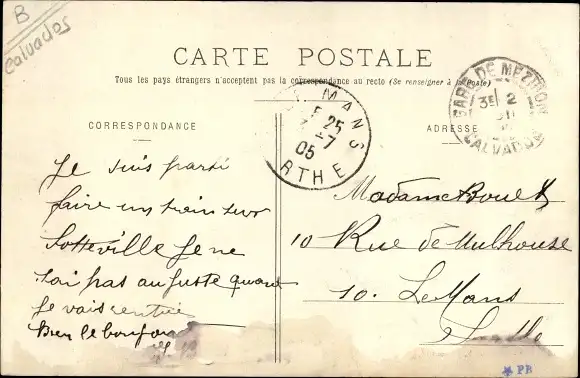 B
Calvados
CARTE POSTALE
Tous les pays étrangers n'acceptent pas la correspondance au recto (Se renseigner à la Poste)
CORRESPONDANCE
ADRESSE
GARE DE MEZIDON
3E 2
CALVADOS
MANS
25
7
05
RTHE
Je suis parti
faire un train sur
Sotteville Je ne
sai pas au juste quant
Je vais rentré
Bien le bonjour
Madame
10 Rue de Mulhouse
10. Le Mans
Sarthe
PB